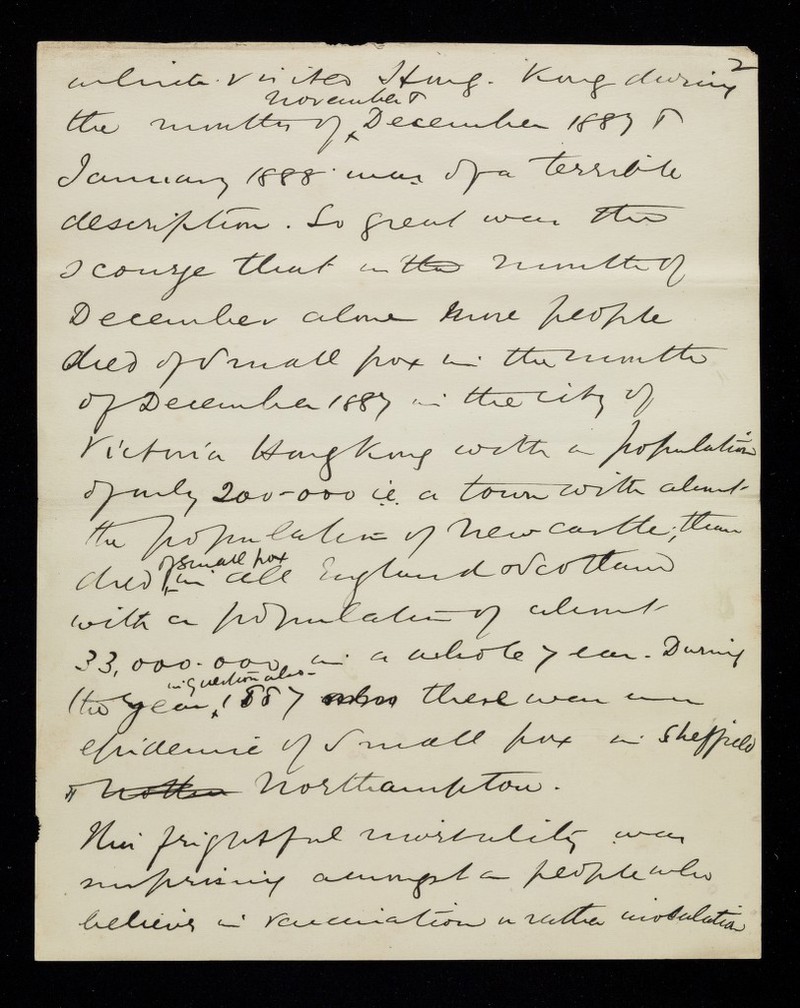 2
which visited Hong. Kong during
november &
the months of December 1887 &
January 1888 was of a terrible
description. So great was the
scourge that in the month of
December alone more people
died of Small pox in the month
of December 1887 in the city of
Victoria Hong Kong with a population
of only 200-000 i.e. a town with about
the population of Newcastle; than
of small pox
died in all England & Scotland
with a population of about
33,000.000 in a whole year. During
in question also
the year 1887 there was an
epidemic of Small pox in Sheffield
& Northampton.
This frightful mortality was
surprising amongst a people who
believes in vaccination or rather inoculation